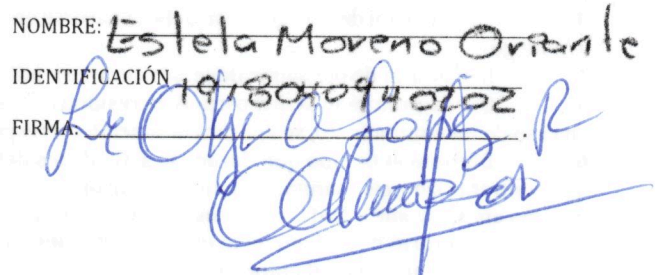 NOMBRE: Estela Moreno Oriante
IDENTIFICACIÓN 1918040940202
FIRMA: Olga López R